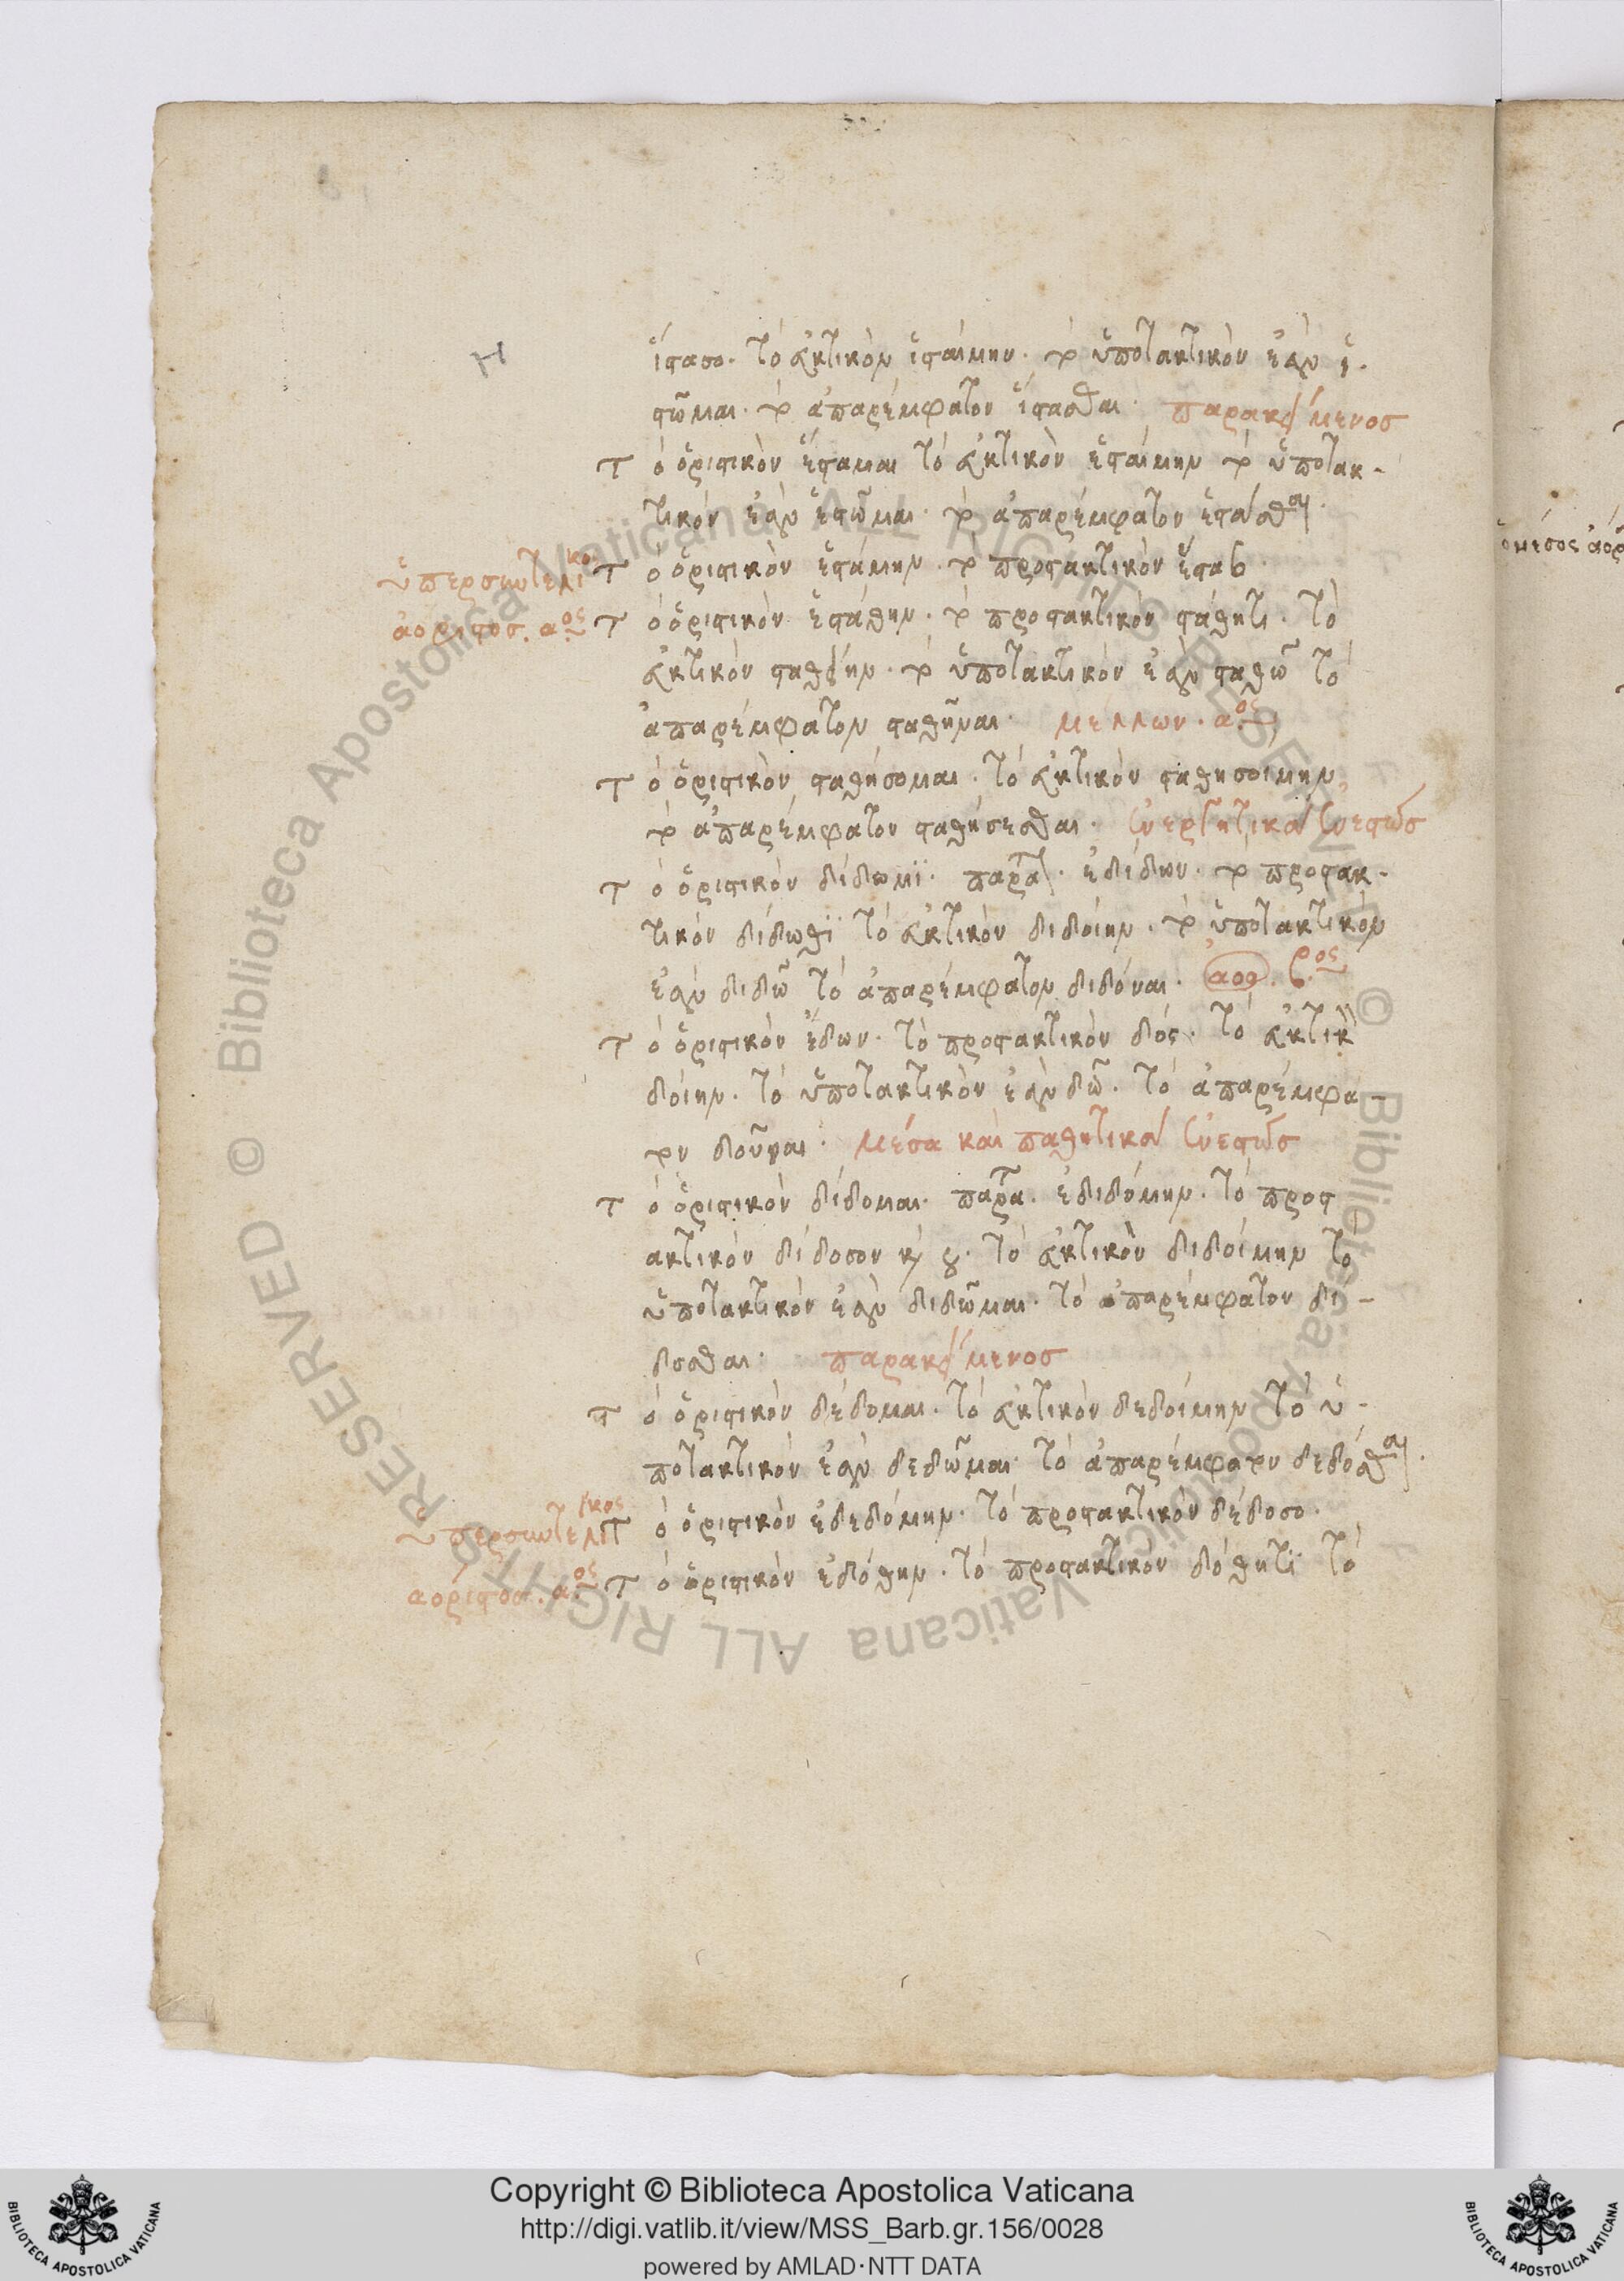 ἵστασο. τὸ εὐκτικὸν ἱσταίμην. τὸ ὑποτακτικὸν ἐὰν ἱ-
στῶμαι. τὸ ἀπαρέμφατον ἵστασθαι. παρακείμενος
Τὸ ὁριστικὸν ἕσταμαι τὸ εὐκτικὸν ἑσταίμην τὸ ὑποτακ-
τικὸν ἐὰν ἑστῶμαι. τὸ ἀπαρέμφατον ἑστάσθαι.
ὑπερσυντελικος Τὸ ὁριστικὸν ἑστάμην. τὸ προστακτικὸν ἕστασο.
ἀοριστος. αος Τὸ ὁριστικὸν ἐστάθην. τὸ προστακτικὸν στάθητι. τὸ
εὐκτικὸν σταθείην. τὸ ὑποτακτικὸν ἐὰν σταθῶ τὸ
ἀπαρέμφατον σταθῆναι. μελλων. αος
Τὸ ὁριστικὸν σταθήσομαι. τὸ εὐκτικὸν σταθησοίμην
τὸ ἀπαρέμφατον σταθήσεσθαι. ἐνεργητικὰ ἐνεστῶς
Τὸ ὁριστικὸν δίδωμϊ. παρατ. ἐδίδων. τὸ προστακ-
τικὸν δίδωθϊ τὸ εὐκτικὸν διδοίην. τὸ ὑποτακτικὸν
ἐὰν διδῶ τὸ ἀπαρέμφατον διδόναι. ἀορ. βος
Τὸ ὁριστικὸν ἔδων. τὸ προστακτικὸν δός. τὸ εὐκτικὸν
δοίην. τὸ ὑποτακτικὸν ἐὰν δῶ. τὸ ἀπαρέμφα-
τον δοῦναι. μέσα καὶ παθητικὰ ἐνεστῶς
Τὸ ὁριστικὸν δίδομαι. παρατ. ἐδιδόμην. τὸ προστ
ακτικὸν δίδοσον καὶ ου. τὸ εὐκτικὸν διδοίμην τὸ
ὑποτακτικὸν ἐὰν διδῶμαι. τὸ ἀπαρέμφατον δί-
δοσθαι. παρακείμενος
Τὸ ὁριστικὸν δέδομαι. τὸ εὐκτικὸν δεδοίμην τὸ ὑ-
ποτακτικὸν ἐὰν δεδῶμαι τὸ ἀπαρέμφατον δεδόσθαι.
ὑπερσυντελικος Τὸ ὁριστικὸν ἐδεδόμην. τὸ προστακτικὸν δέδοσο.
αόριστος. αος Τὸ ὁριστικὸν ἐδόθην. τὸ προστακτικὸν δόθητϊ τὸ
Copyright © Biblioteca Apostolica Vaticana
http://digi.vatlib.it/view/MSS_Barb.gr.156/0028
powered by AMLAD·NTT DATA